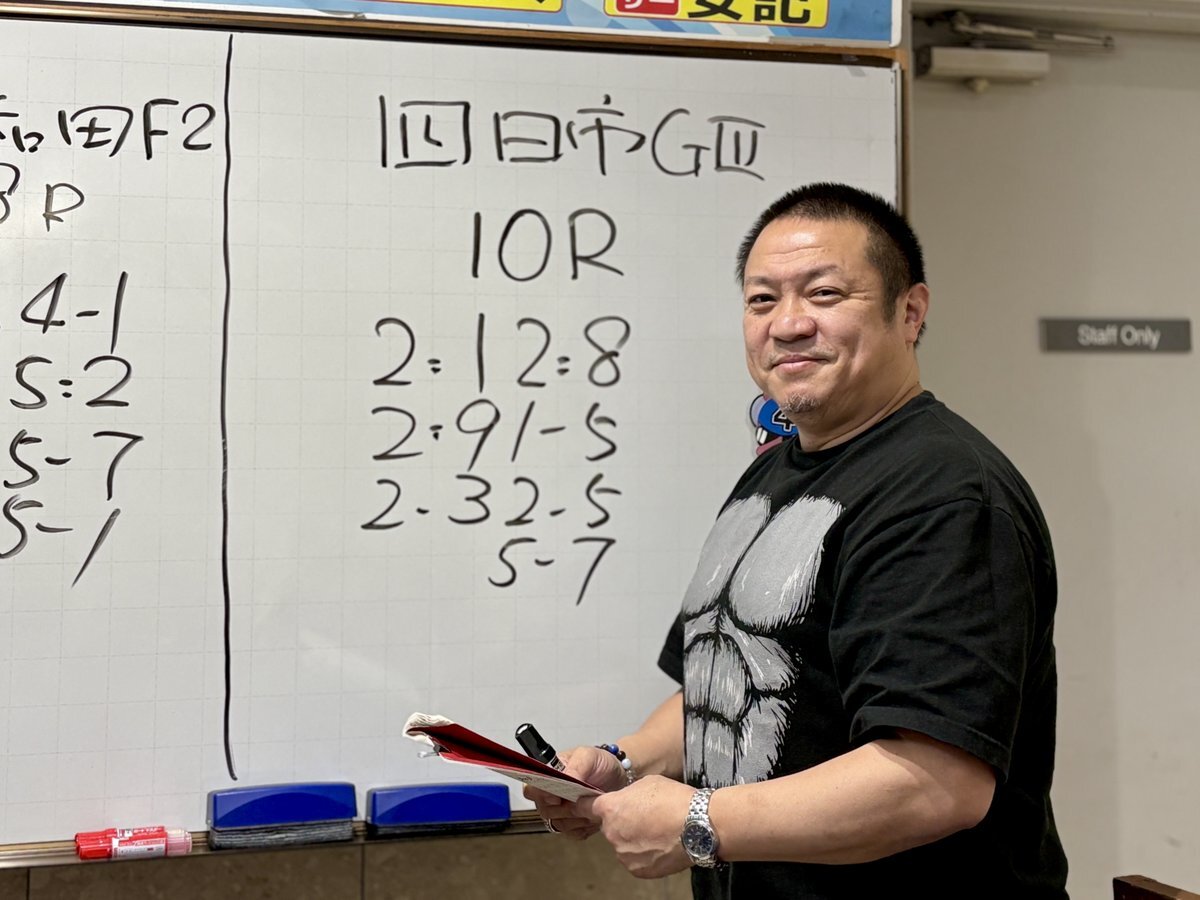 安記
F2
R
4-1
5=2
5-7
5-1
四日市GⅢ
10R
2=1 2=8
2=9 1-5
2-3 2-5
5-7
4
Staff Only